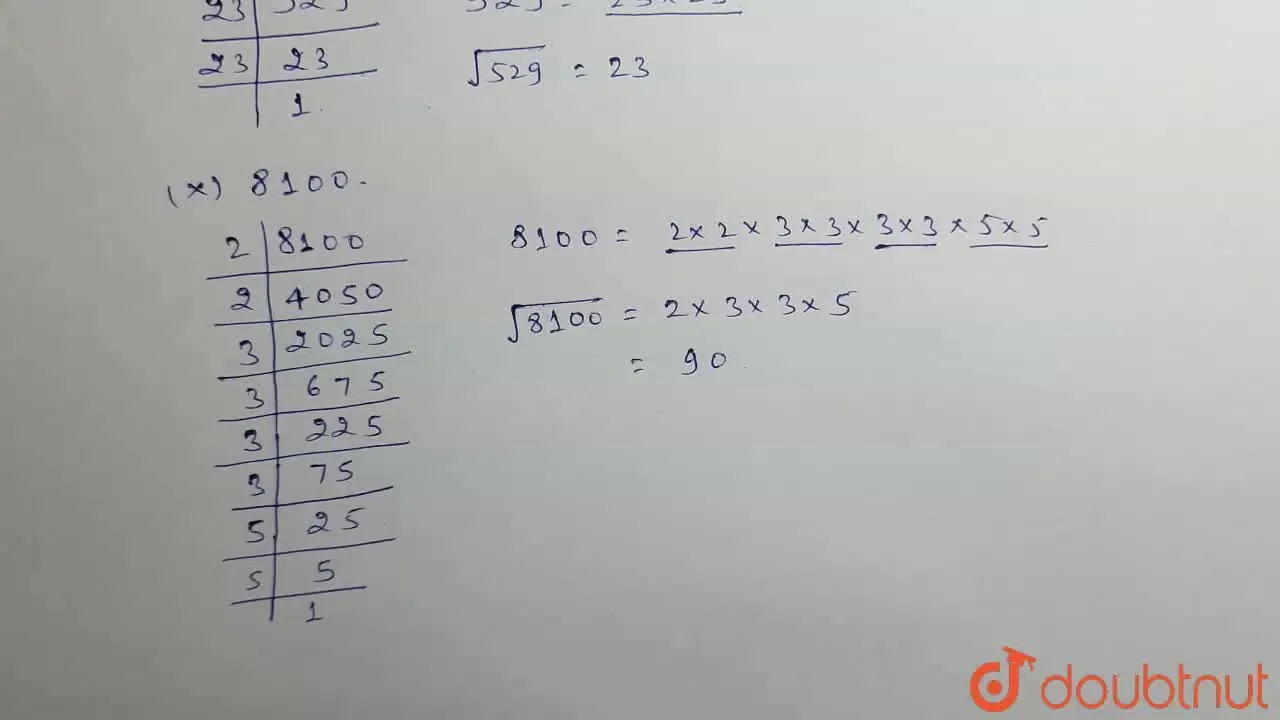 23
23 | 23
1.
√529 = 23
(x) 8100.
2 | 8100
2 | 4050
3 | 2025
3 | 675
3 | 225
3 | 75
5 | 25
5 | 5
1
8100 = 2×2 × 3×3 × 3×3 × 5×5
√8100 = 2× 3× 3× 5
= 90.
doubtnut